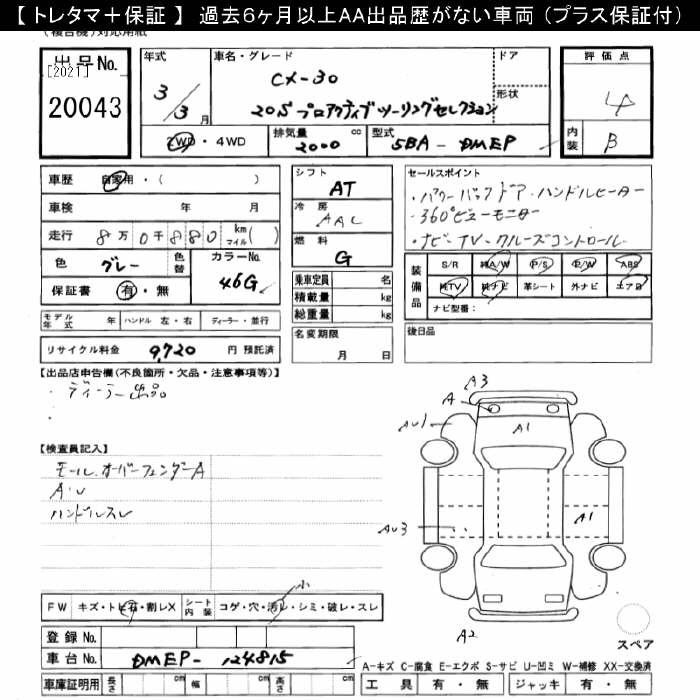 【 トレタマ＋保証 】 過去６ヶ月以上ＡＡ出品歴がない車両（プラス保証付）
(複合機)対応用紙
出品No.
[2021]
20043
年式
3/3月
車名・グレード
CX-30
20S プロアクティブツーリングセレクション
ドア
形状
評価点
4
内装
B
2WD・4WD
排気量
2000 cc
型式
5BA-DMEP
車歴 自家用・( )
車検 年 月
走行 8万0千880 km マイル( )
色 グレー 色替 カラーNo. 46G
保証書 有・無
シフト AT
冷房 AAC
燃料 G
乗車定員 名
積載量 kg
総重量 kg
セールスポイント
・パワーバックドア・ハンドルヒーター
・360°ビューモニター
・ナビ-TV-クルーズコントロール
装備品 S/R 純A/W P/S P/W ABS
純TV 純ナビ 革シート 外ナビ エアB
ナビ型番：
モデル年式 年 ハンドル 左・右 ディーラー・並行
名変期限
月 日
後日品
リサイクル料金 9,720 円 預託済
【出品店申告欄(不良箇所・欠品・注意事項等)】
・ディーラー出品
・
【検査員記入】
モール、オーバーフェンダーA
A・U
ハンドルスレ
A3
A
A1
AU1
AU3
A1
A2
スペア
小
FW キズ・トビ石・割レX シート内装 コゲ・穴・汚レ・シミ・破レ・スレ
登録No.
車台No. DMEP-124815
A-キズ C-腐食 E-エクボ S-サビ U-凹ミ W-補修 XX-交換済
車庫証明用 長さ cm 幅 cm 高さ cm
工具 有・無 ジャッキ 有・無